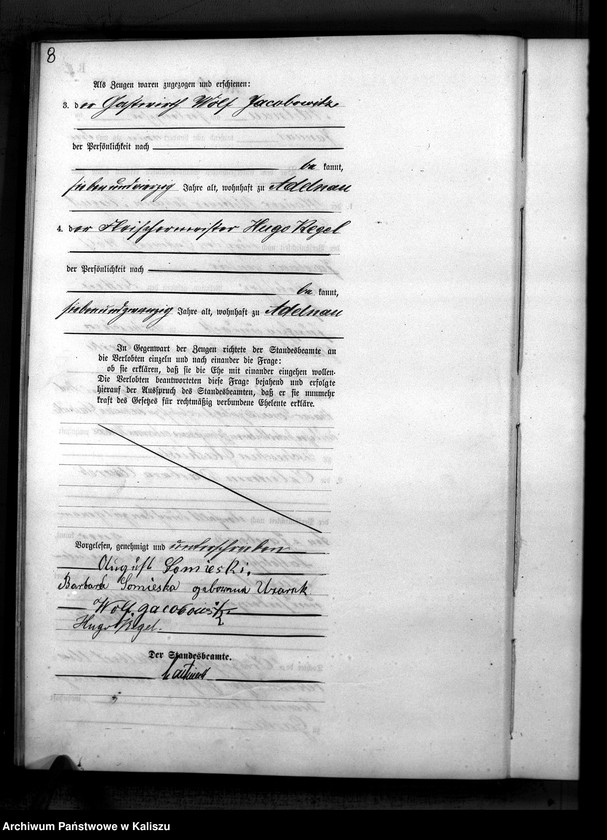 8
Als Zeugen waren zugezogen und erschienen:
3. der Gastwirth Wolf Jacobowitz
der Persönlichkeit nach
be kannt,
siebenundvierzig Jahre alt, wohnhaft zu Adelnau
4. der Fleischermeister Hugo Kegel
der Persönlichkeit nach
be kannt,
siebenundzwanzig Jahre alt, wohnhaft zu Adelnau
In Gegenwart der Zeugen richtete der Standesbeamte an
die Verlobten einzeln und nach einander die Frage:
ob sie erklären, daß sie die Ehe mit einander eingehen wollen.
Die Verlobten beantworteten diese Frage bejahend und erfolgte
hierauf der Ausspruch des Standesbeamten, daß er sie nunmehr
kraft des Gesetzes für rechtmäßig verbundene Eheleute erkläre.
Vorgelesen, genehmigt und unterschrieben
August Somieski.
Barbara Somieska geborenna Uzarek
Wolf Jacobowitz
Hugo Kegel.
Der Standesbeamte.
Archiwum Państwowe w Kaliszu